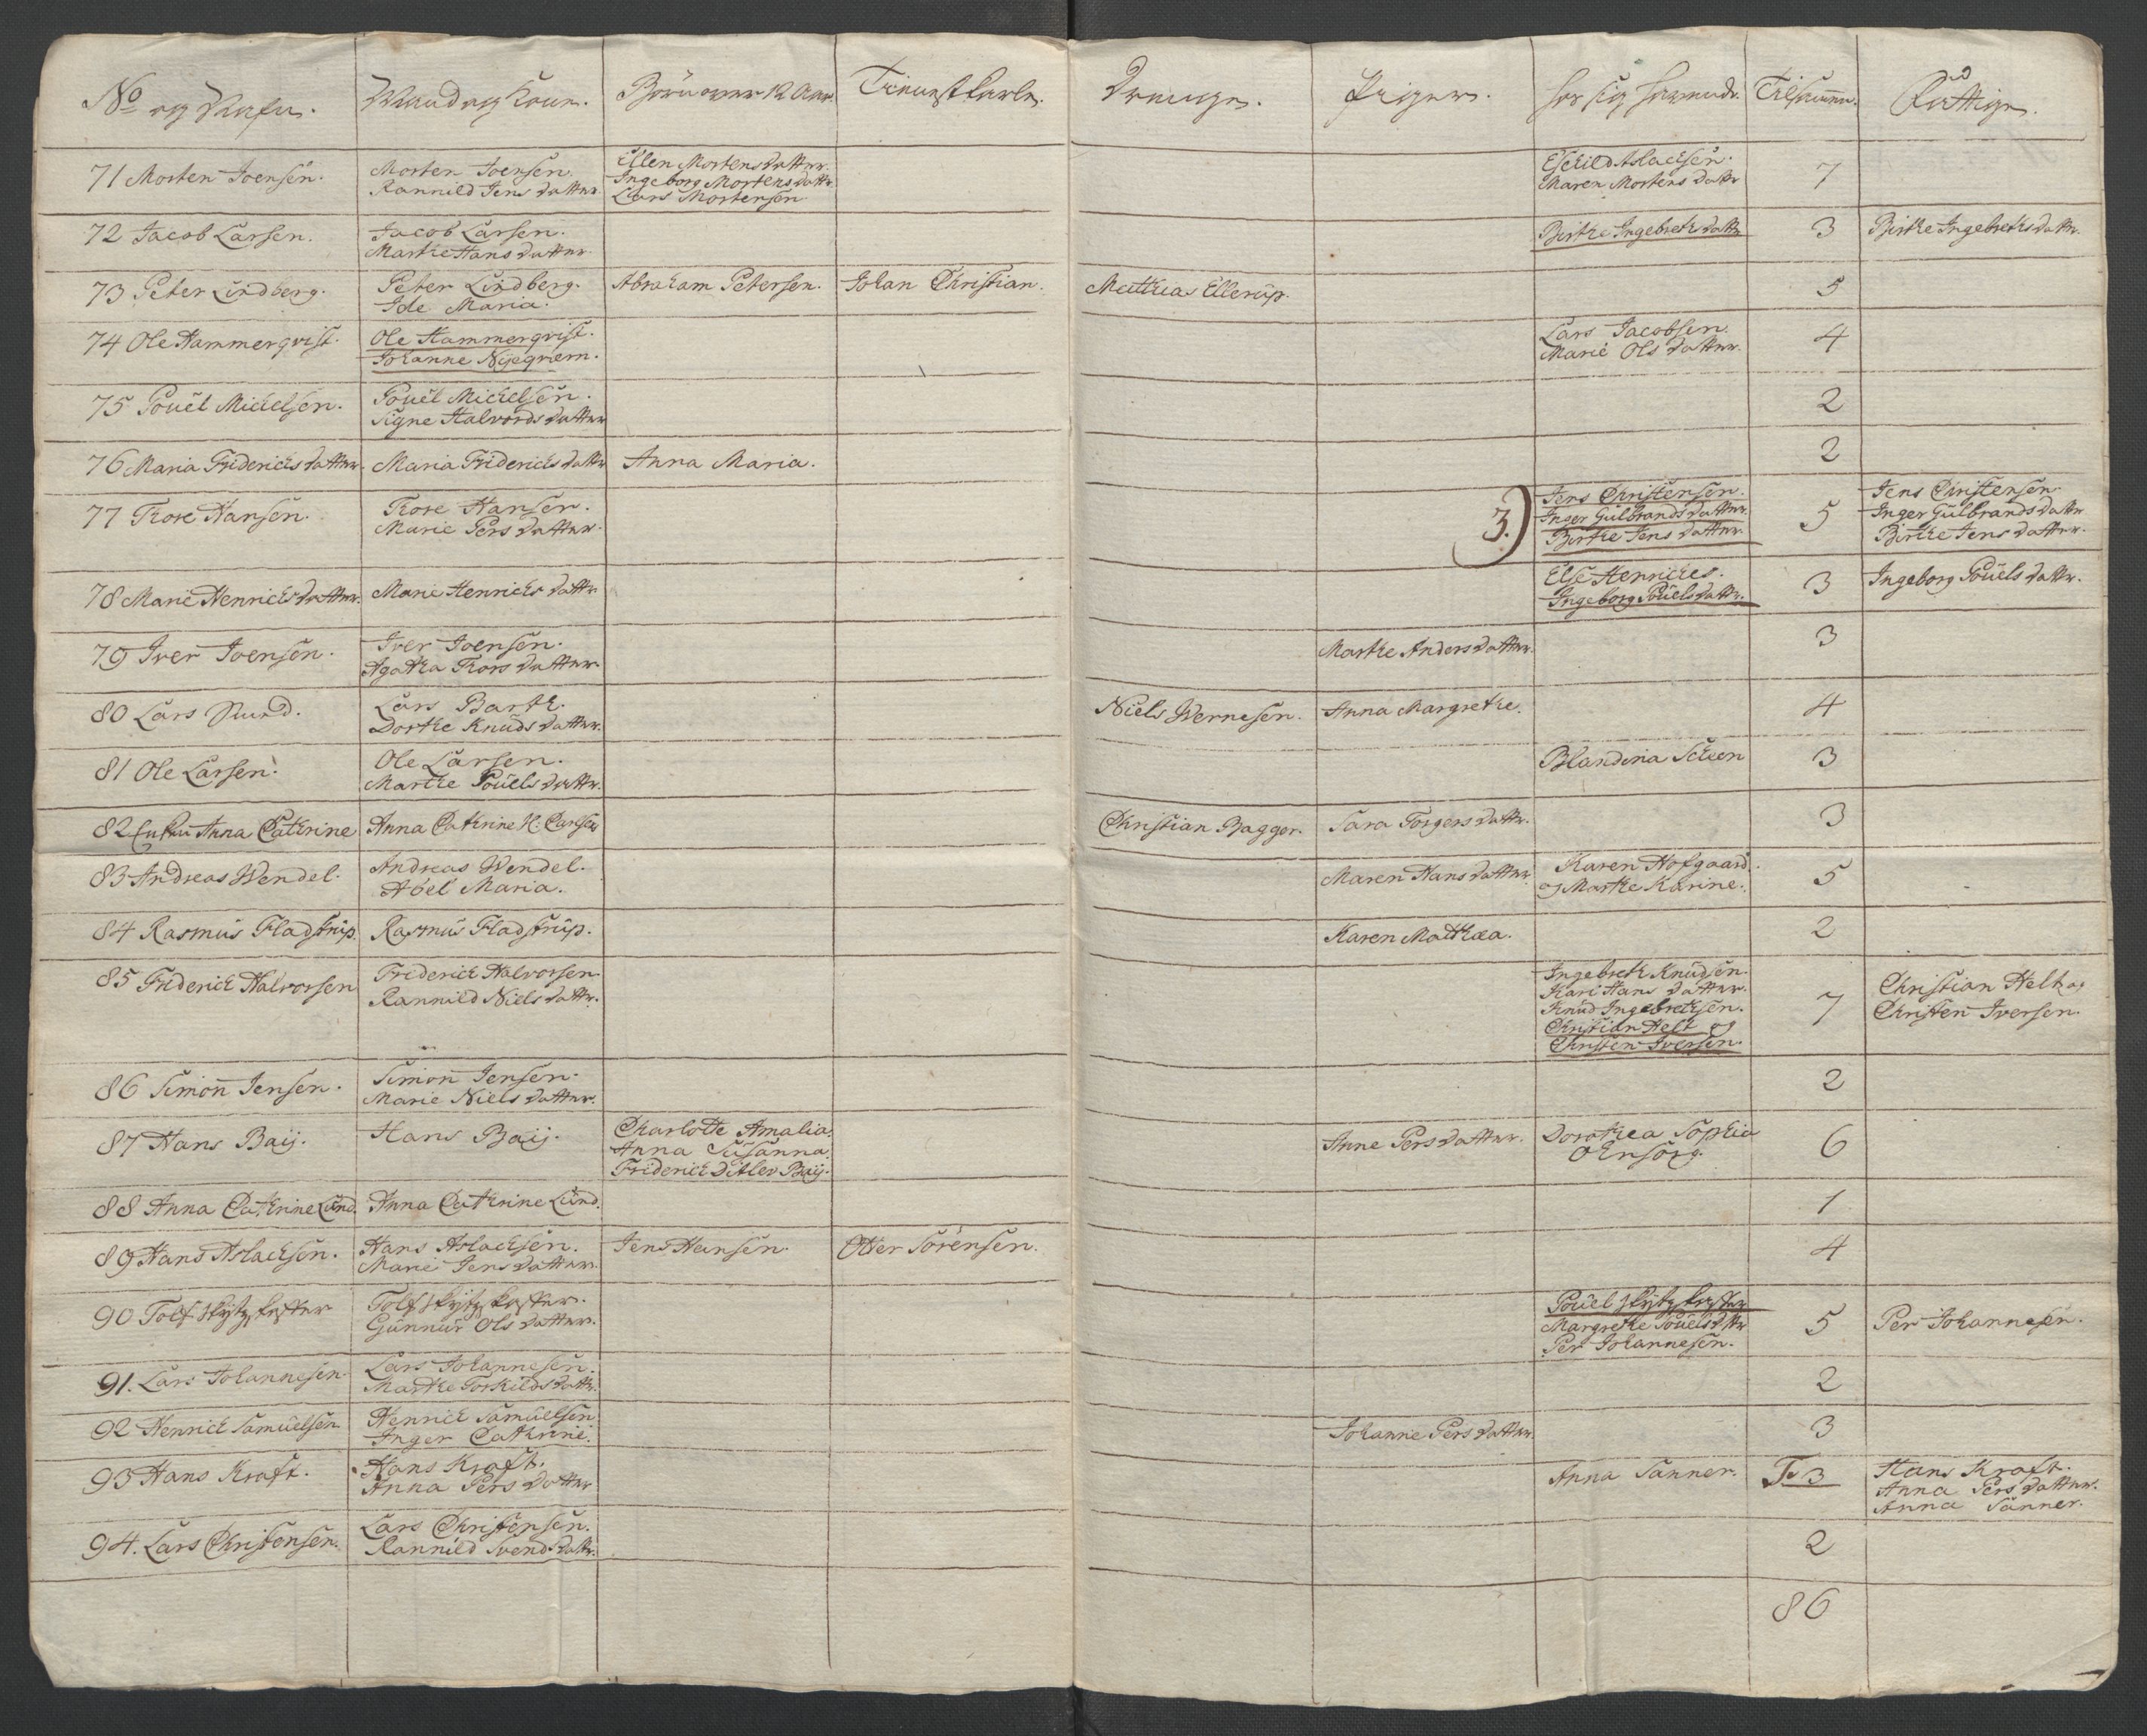 No og Nafn. Mand og Kone. Börn over 12 Aar. Tienest Karle. Drenge. Piger. for sig svarende. Tilsamen. Fattige.
71 Morten Joensen. Morten Joensen. Ellen Mortensdatter. Eschild Aslachsen. 7
Rannild Jens datter. Ingeborg Mortens datter. Maren Mortens datter
Lars Mortensen.
72 Jacob Larsen. Jacob Larsen. Birthe Ingebreths datter 3 Birthe Ingebreths datter.
Marthe Hans datter.
73 Peter Lindberg. Peter Lindberg. Abraham Petersen. Johan Christian. Matthias Ellerup. 5
Ide Maria.
74 Ole Hammerqvist. Ole Hammerqvist. Lars Jacobsen. 4
Johanne Nyeqviern. Marie Ols datter.
75 Pouel Michelsen. Pouel Michelsen. 2
Signe Halvords datter
76 Maria Friderichs datter. Maria Friderichs datter Anna Maria. 2
77 Thore Hansen. Thore Hansen. 3.) Jens Christensen. 5 Jens Christensen.
Marie Pers datter. Inger Gulbrands datter. Inger Gulbrands datter
Birthe Jens datter. Birthe Jens datter.
78 Marie Henrichs datter. Marie Henrichs datter Else Henriches. 3 Ingeborg Pouels datter.
Ingeborg Pouels datter.
79 Iver Joensen. Iver Joensen. Marthe Anders datter. 3
Agatha Thors datter
80 Lars Sund. Lars Barth. Niels Wernesen. Anna Margrethe. 4
Dorthe Knuds datter.
81 Ole Larsen. Ole Larsen. Blandina Scheen 3
Marthe Pouels datter.
82 Anna Cathrine Anna Cathrine H: Carlsen Christian Bagger. Sara Torgers datter. 3
83 Andreas Wendel. Andreas Wendel. Maren Hans datter. Karen Hofgaard. 5
Abel Maria. og Marthe Karine.
84 Rasmus Fladstrup. Rasmus Fladstrup. Karen Matthæa. 2
85 Friderich Halvorsen Friderich Halvorsen. Ingebreth Knudsen. 7 Christian Helt og
Rannild Niels datter. Kari Hans datter. Christen Iversen.
Knud Ingebrethsen.
Christian Helt og
Christen Iversen.
86 Simon Jensen. Simon Jensen. 2
Marie Niels datter.
87 Hans Baij. Hans Baij. Charlotte Amalia. Anne Pers datter. Dorothea Sophia 6
Anna Susanna. Ohnsorg.
Friderich Ditlev Baij.
88 Anna Cathrine Lund. Anna Cathrine Lund. 1
89 Hans Aslachsen. Hans Aslachsen. Jens Hansen. Otter Sörensen. 4
Marie Jens datter.
90 Tolf Pouel 5 Per Johannesen.
Gunnur Ols datter. Margrethe Pouels dttr
Per Johannesen.
91. Lars Johannesen. Lars Johannesen. 2
Marthe Torkilds datter.
92 Henrich Samuelsen Henrich Samuelsen. Johanne Pers datter. 3
Inger Cathrine.
93 Hans Kraft. Hans Kraft. Anna Sanner. 3 Hans Kraft.
Anna Pers datter Anna Pers datter.
Anna Sanner.
94. Lars Christensen. Lars Christensen. 2
Rannild Svends datter.
86